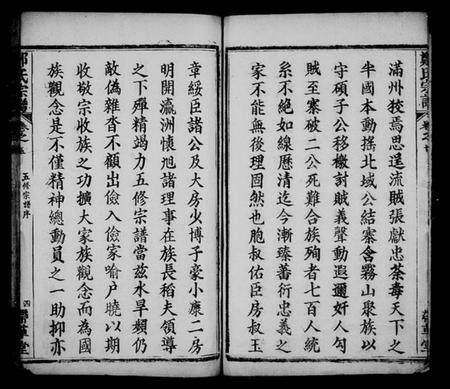 滿州狡焉思逞流賊張獻忠荼毒天下之
半國本動搖北域公結寨含霧山聚族以
守碩子公移檄討賊義聲動遐邇奸人勾
賊至寨破二公死難合族殉者七百人利
系不絕如線歷清迄今漸臻蕃衍忠義之
家不能無後理固然也胞叔佑臣房叔玉
章綬臣諸公及大房火博子豪小廉二房
明開瀛洲懷旭諸理事在族長稻夫領導
之下殫精竭力五修宗譜當兹水旱頻仍
敵偽雜沓不顧出儉入儉家喻戶曉以期
收敬宗收族之功擴大家族觀念而為國
族觀念是不僅精神總動員之一助抑亦
鄭氏宗譜
卷之
五修宗譜序
四
堂